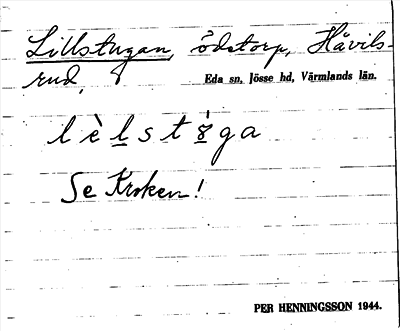 Lillstugan, ödetorp, Håvils-
rud,
Eda sn, Jösse hd, Värmlands län.
l è l s t 8̀ g a
Se Kroken!
PER HENNINGSSON 1944.